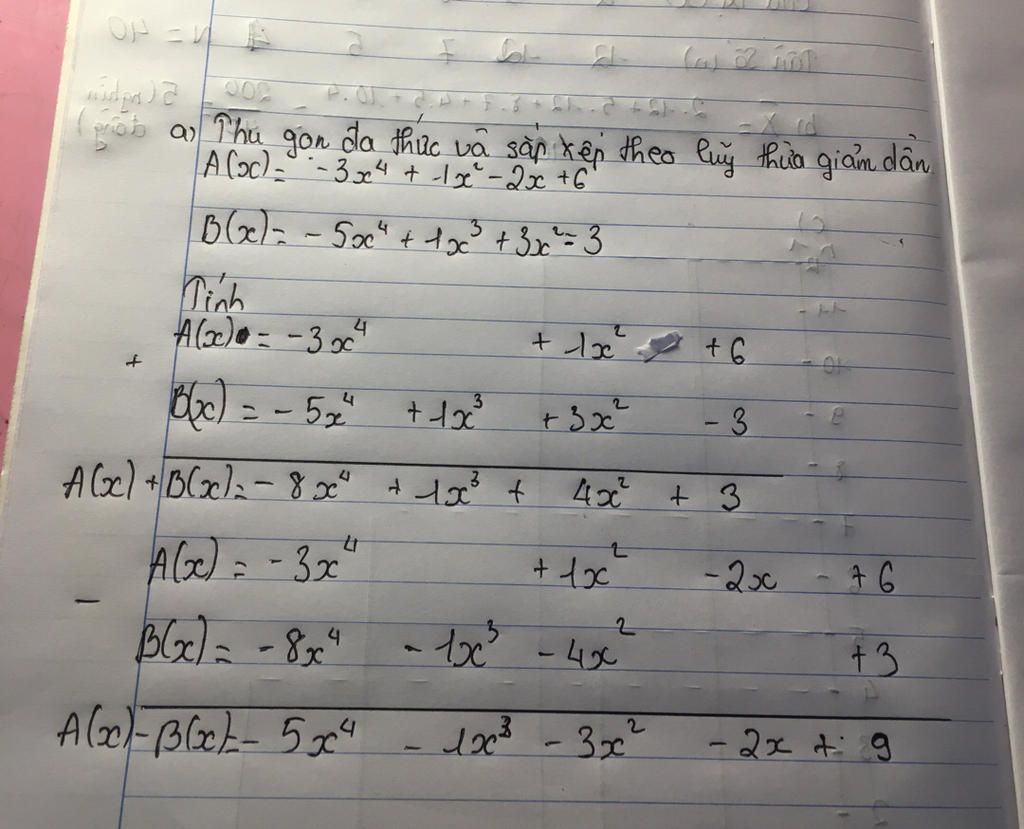 a) Thu gọn đa thức và sắp xếp theo luỹ thừa giảm dần
A(x) = -3x⁴ + 1x² - 2x + 6
B(x) = - 5x⁴ + 1x³ + 3x² = 3
Tính
A(x) = -3x⁴ + 1x² + 6
+
B(x) = - 5x⁴ + 1x³ + 3x² - 3
A(x) + B(x) = - 8x⁴ + 1x³ + 4x² + 3
A(x) = - 3x⁴ + 1x² - 2x + 6
−
B(x) = - 8x⁴ - 1x³ - 4x² + 3
A(x) - B(x) = - 5x⁴ - 1x³ - 3x² - 2x + 9